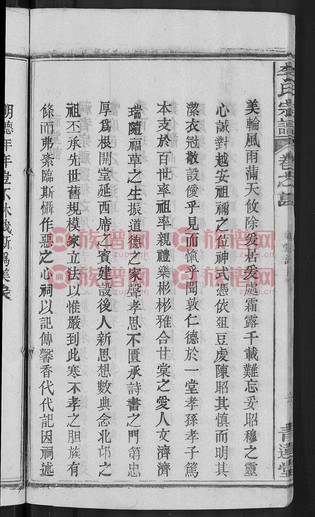 美輪風雨蒲天攸除爰居爰處霜露千載難忘妥昭穆之靈
心誠對越安祖禰之位神式憑依俎豆處陳昭其慎而明其
潔衣冠散設優乎見而愾乎聞敦仁德於一堂孝孫孝子篤
本支於百世率祖率親禮樂彬彬雅合甘棠之愛人文濟濟
瑞隨福草之生振道德之家聲孝思不匱承詩書之門第忠
厚為根開堂延西席之賓建設後人新思想數典念北邙之
祖丕承先世舊規模家立法以惟嚴到此寒不孝之胆族有
條而弗紊臨斯懾作惡之心祠以記傳馨香代代記因祠述
明德年年
青蓮堂
族譜网